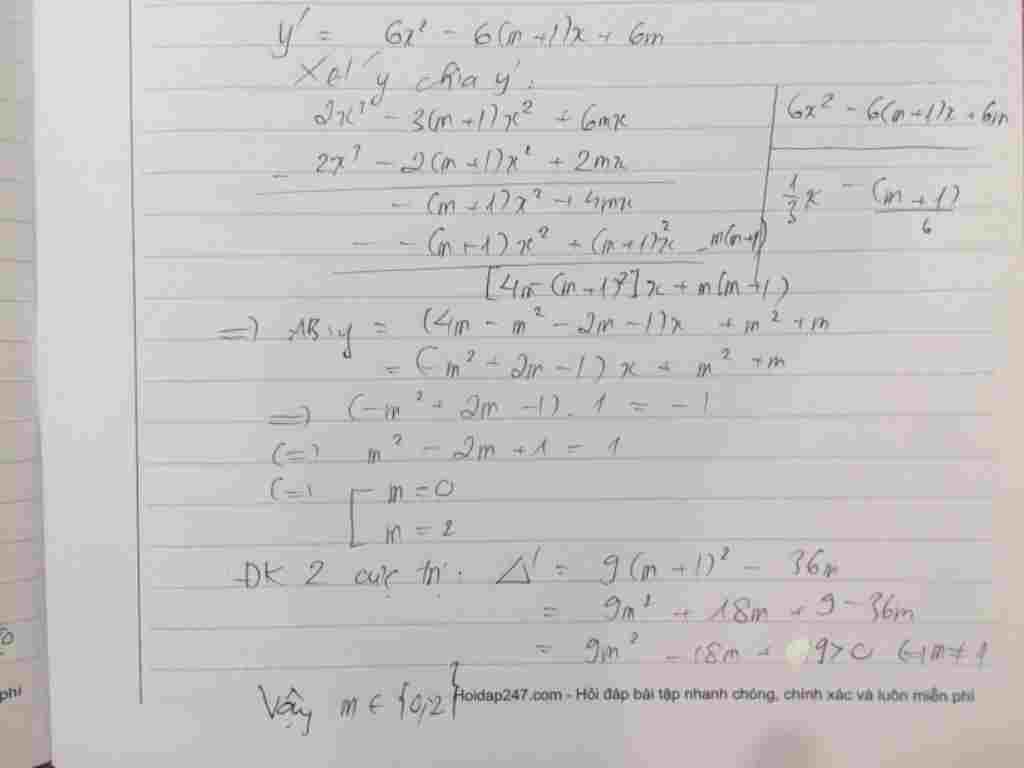 y' = 6x² - 6(m+1)x + 6m
Xét y chia y':
2x³ - 3(m+1)x² + 6mx
6x² - 6(m+1)x + 6m
- 2x³ - 2(m+1)x² + 2mx
1/3 x - (m+1)/6
- (m+1)x² + 4mx
- - (m+1)x² + (m+1)²x - m(m+1)
[4m - (m+1)²]x + m(m+1)
=> AB: y = (4m - m² - 2m - 1)x + m² + m
= (-m² + 2m - 1)x + m² + m
=> (-m² + 2m - 1).1 = -1
(=) m² - 2m + 1 = 1
(=) [ m = 0
m = 2
ĐK 2 cực trị: Δ' = 9(m+1)² - 36m
= 9m² + 18m + 9 - 36m
= 9m² - 18m + 9 > 0 (=) m ≠ 1
Vậy m ∈ {0,2}
Hoidap247.com - Hỏi đáp bài tập nhanh chóng, chính xác và luôn miễn phí
phí